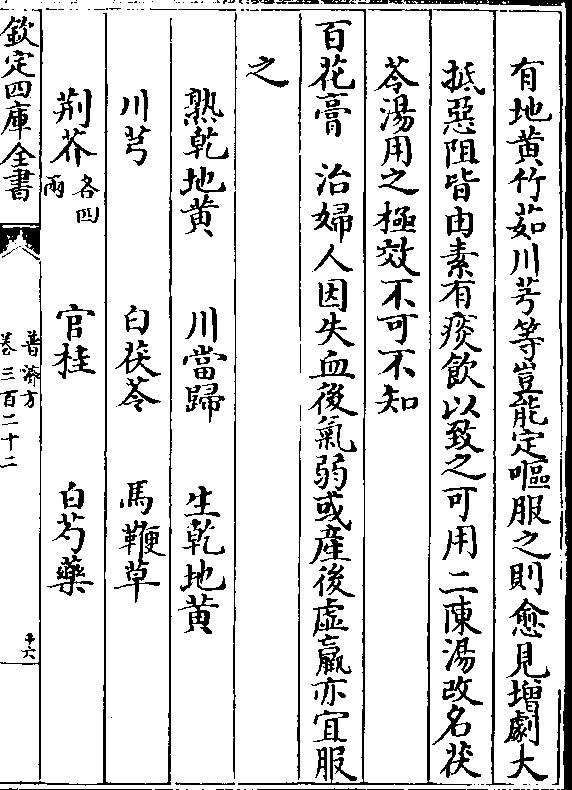 有地黄竹茹川芎等豈能定嘔服之則愈見增劇大
抵惡阻皆由素有痰飲以致之可用二陳湯改名茯
苓湯用之極效不可不知
百花膏 治婦人因失血後氣弱或産後虛羸亦宜服
之
熟乾地黄 川當歸 生乾地黄
川芎 白茯苓 馬鞭草
荆芥各四兩 官桂 白芍藥
欽定四庫全書
普濟方
卷三百二十二